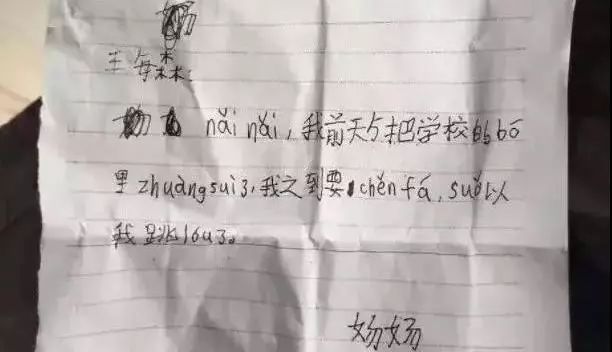 nǎi nǎi,我前天把学校的bō
里zhuàngsuì了,我之到要chěnfá,suǒ以
我跳lóu了。